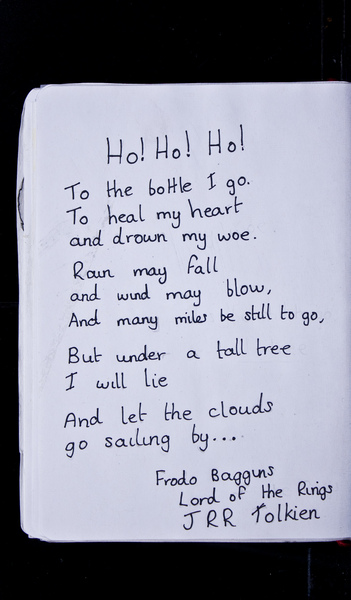 Ho! Ho! Ho!
To the bottle I go.
To heal my heart
and drown my woe.
Rain may fall
and wind may blow,
And many miles be still to go,
But under a tall tree
I will lie
And let the clouds
go sailing by...
Frodo Baggins
Lord of the Rings
JRR Tolkien